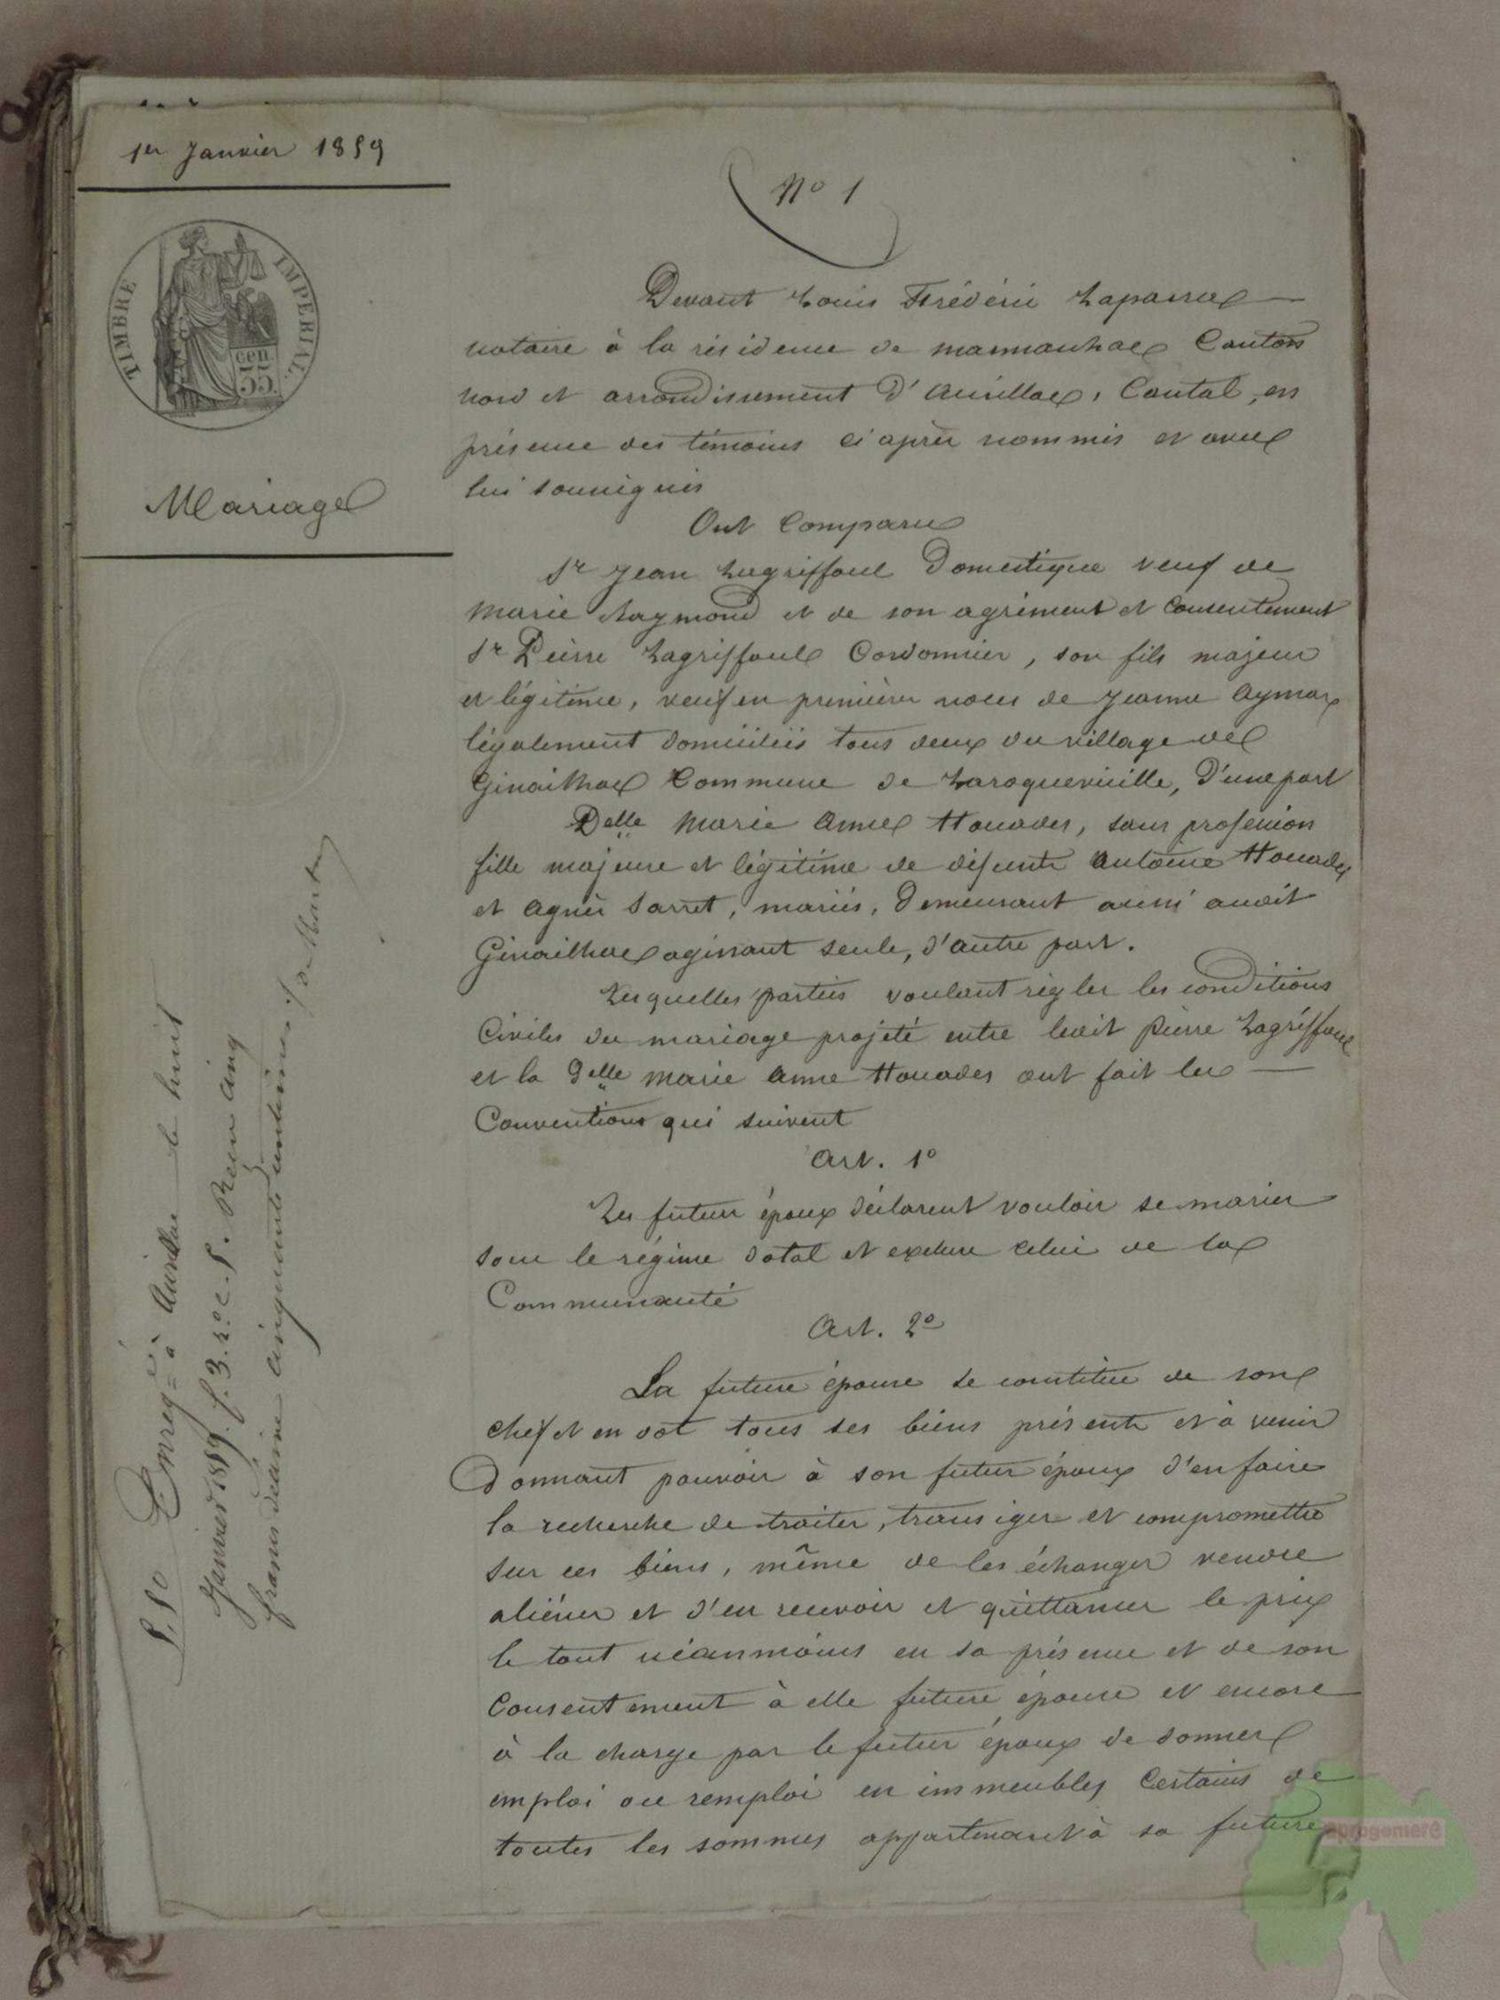 1er Janvier 1859
No 1
TIMBRE IMPERIAL
cen
55
Mariage
Devant Louis Frédéric Laparra
notaire à la résidence de marmanhac Canton
nord et arrondissement d'Aurillac, Cantal, en
présence des témoins ci après nommés et avec
lui soussignés
Ont Comparu
Sr Jean Lagriffoul Domestique veuf de
Marie Raymond et de son agrément et Consentement
Sr Pierre Lagriffoul Cordonnier, son fils majeur
et légitime, veuf en premières noces de Jeanne Aymar
légalement domiciliés tous deux du village de
Ginailhac Commune de Laroquevieille, D'une part
Delle Marie Anne Houades, sans profession
fille majeure et légitime de défunts Antoine Houades
et Agnès Sarret, mariés, Demeurant aussi audit
Ginailhac agissant seule, d'autre part.
Lesquelles parties voulant régler les conditions
Civiles du mariage projeté entre ledit Pierre Lagriffoul
et la Delle Marie Anne Houades ont fait les
Conventions qui suivent
Art. 1o
Les futurs époux déclarent vouloir se marier
sous le régime dotal et exclure celui de la
Communauté
Art. 2o
La future épouse se constitue de son
chef et en dot tous ses biens présents et à venir
Donnant pouvoir à son futur époux d'en faire
la recherche de traiter, transiger et compromettre
sur ces biens, même de les échanger vendre
aliéner et d'en recevoir et quittancer le prix
le tout néanmoins en sa présence et de son
Consentement à elle future épouse et encore
à la charge par le futur époux de donner
emploi ou remploi en immeubles Certains de
toutes les sommes appartenant à sa future
5.50 Enregé à Aurillac le huit
Janvier 1859 f. 3. ro c. 5. Reçu cinq
francs décime cinquante centimes